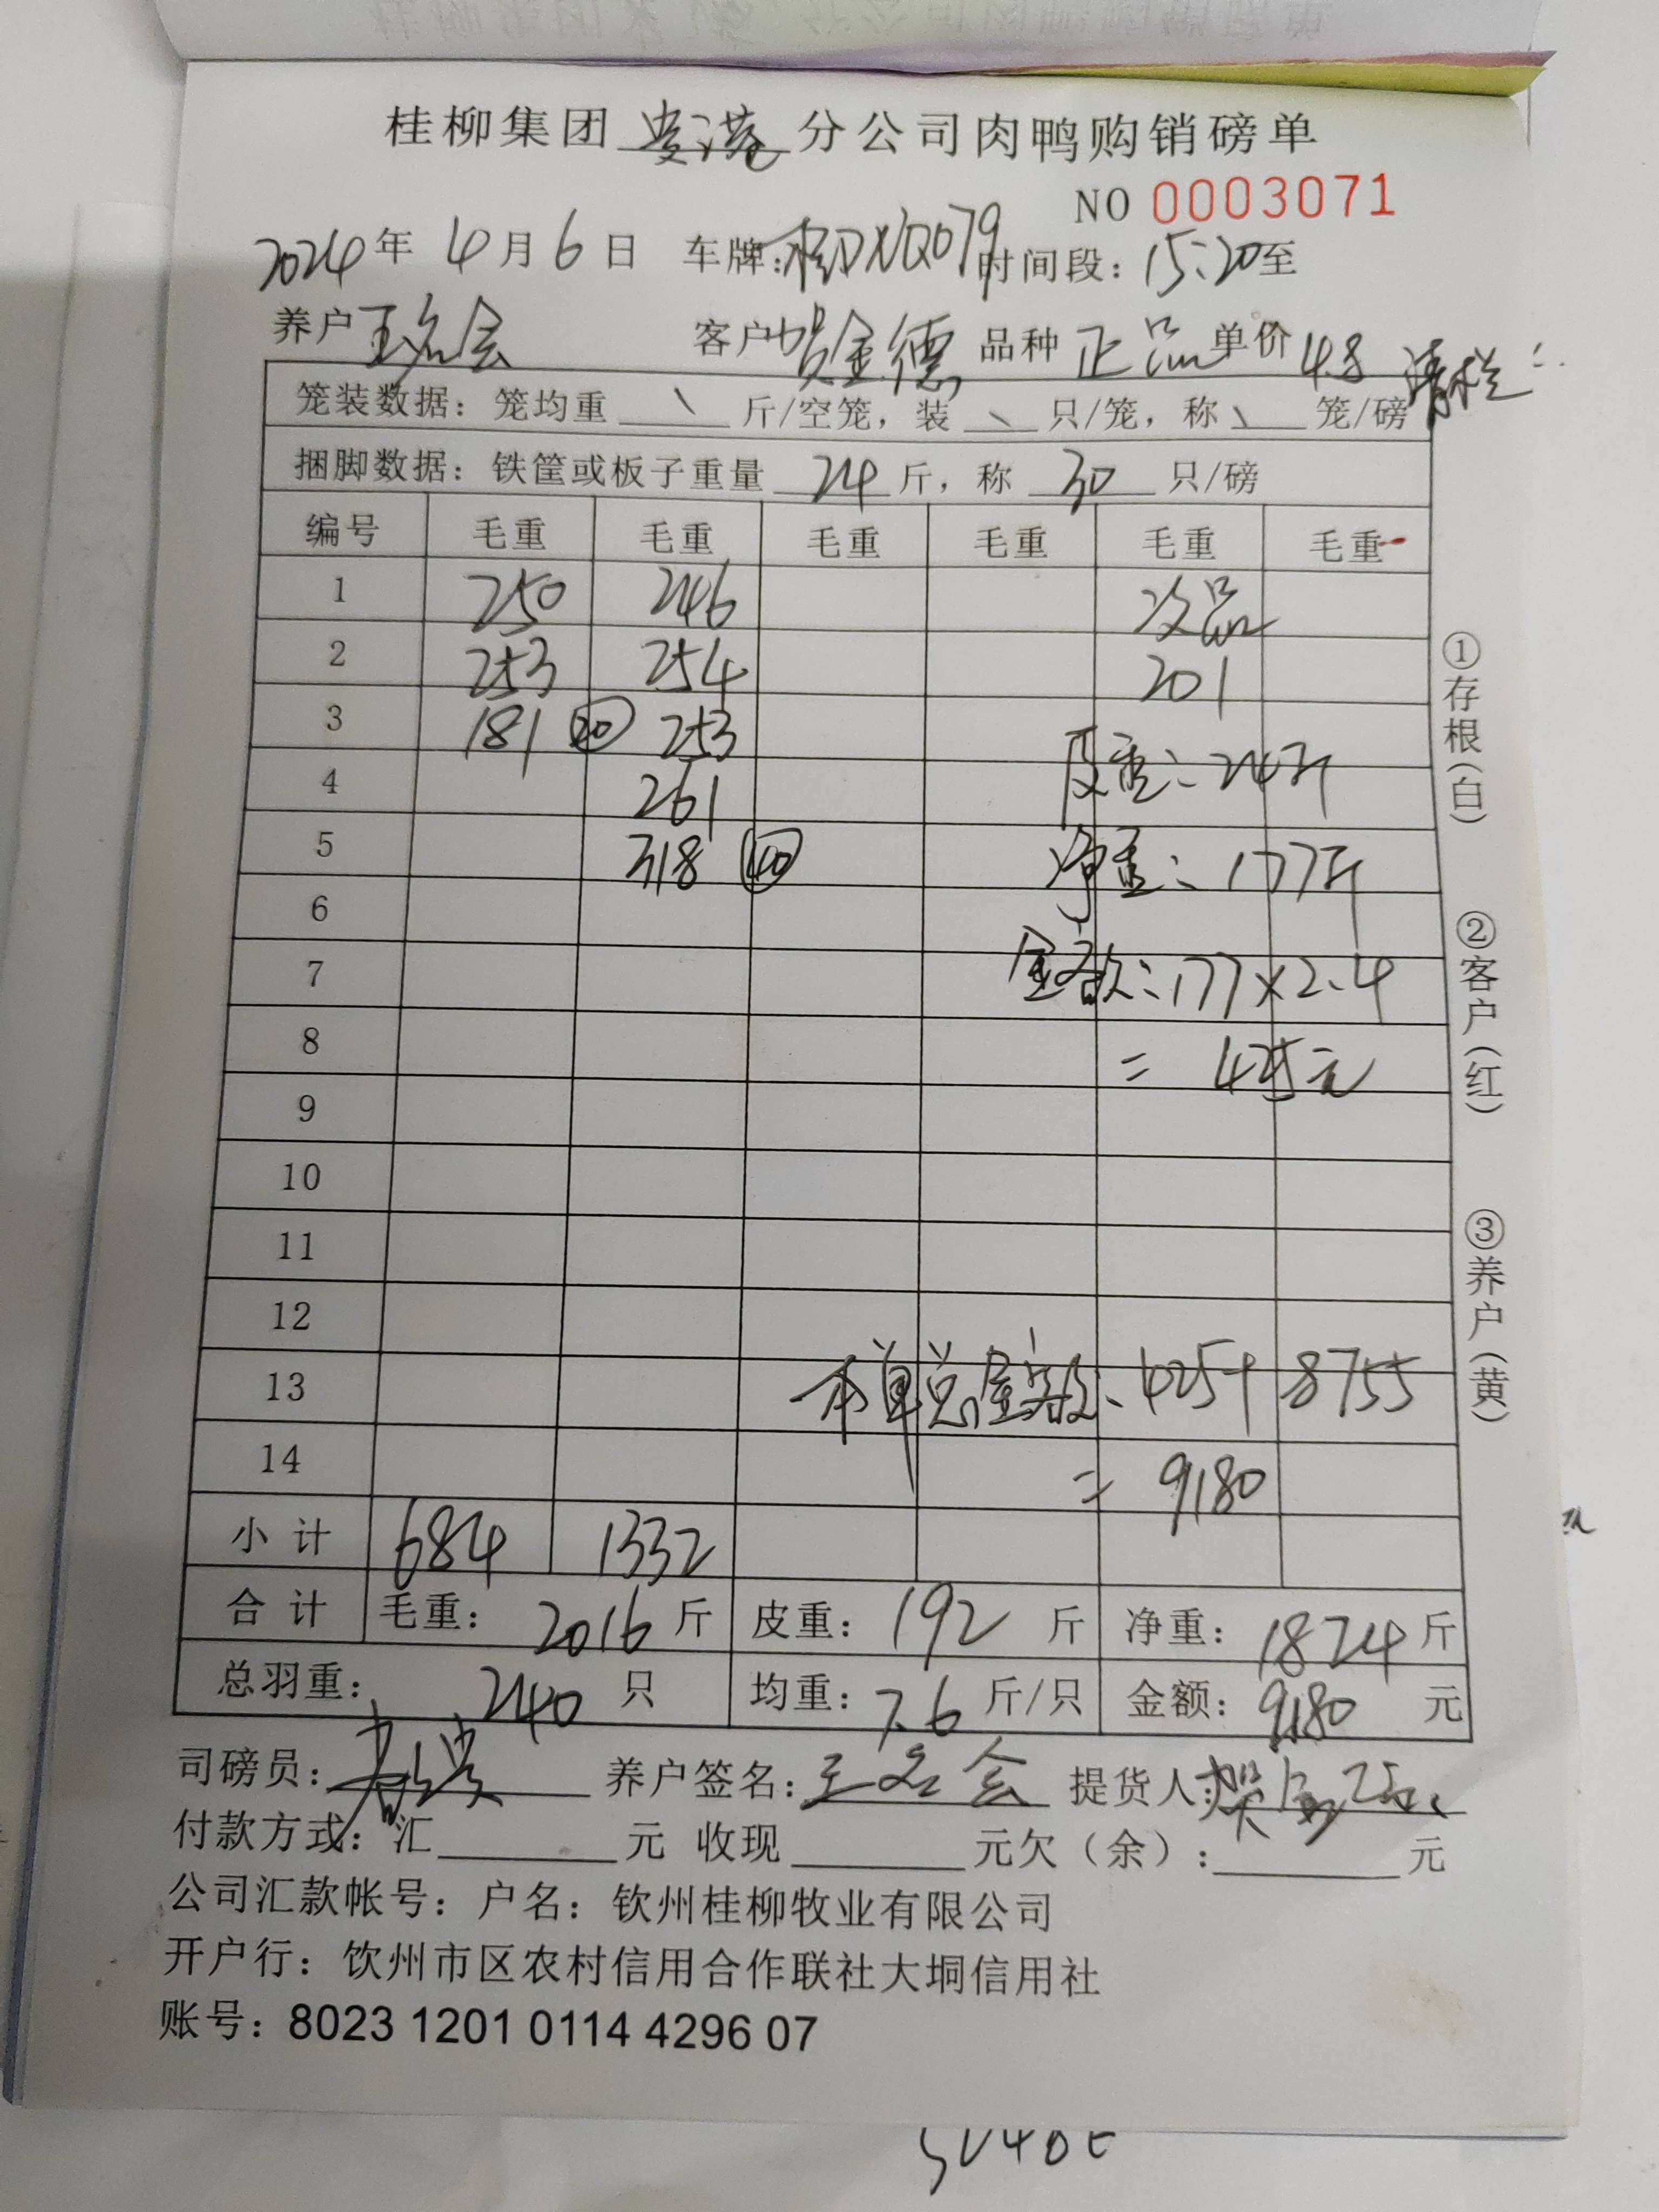 桂柳集团贵港分公司肉鸭购销磅单
NO 0003071
2024年4月6日 车牌:桂DXQ079 时间段:15:20至
养户 王名会 客户 贺金德 品种 正品 单价 4.8 清栏
笼装数据：笼均重 \ 斤/空笼，装 \ 只/笼，称 \ 笼/磅
捆脚数据：铁筐或板子重量 24 斤，称 30 只/磅
编号 毛重 毛重 毛重 毛重 毛重 毛重
1 250 246 次品
2 253 254 201
3 181 20 253 皮重：24斤
4 261
5 318 40 净重：177斤
6
7 金额：177×2.4
8 = 425元
9
10
11
12
13 本单总金额：425+8755
14 = 9180
小计 684 1332
合计 毛重：2016斤 皮重：192斤 净重：1824斤
总羽重：240只 均重：7.6斤/只 金额：9180元
司磅员： 养户签名：王名会 提货人：
付款方式：汇 元 收现 元欠（余）: 元
公司汇款帐号：户名：钦州桂柳牧业有限公司
开户行：钦州市区农村信用合作联社大垌信用社
账号：8023 1201 0114 4296 07
①存根（白）
②客户（红）
③养户（黄）